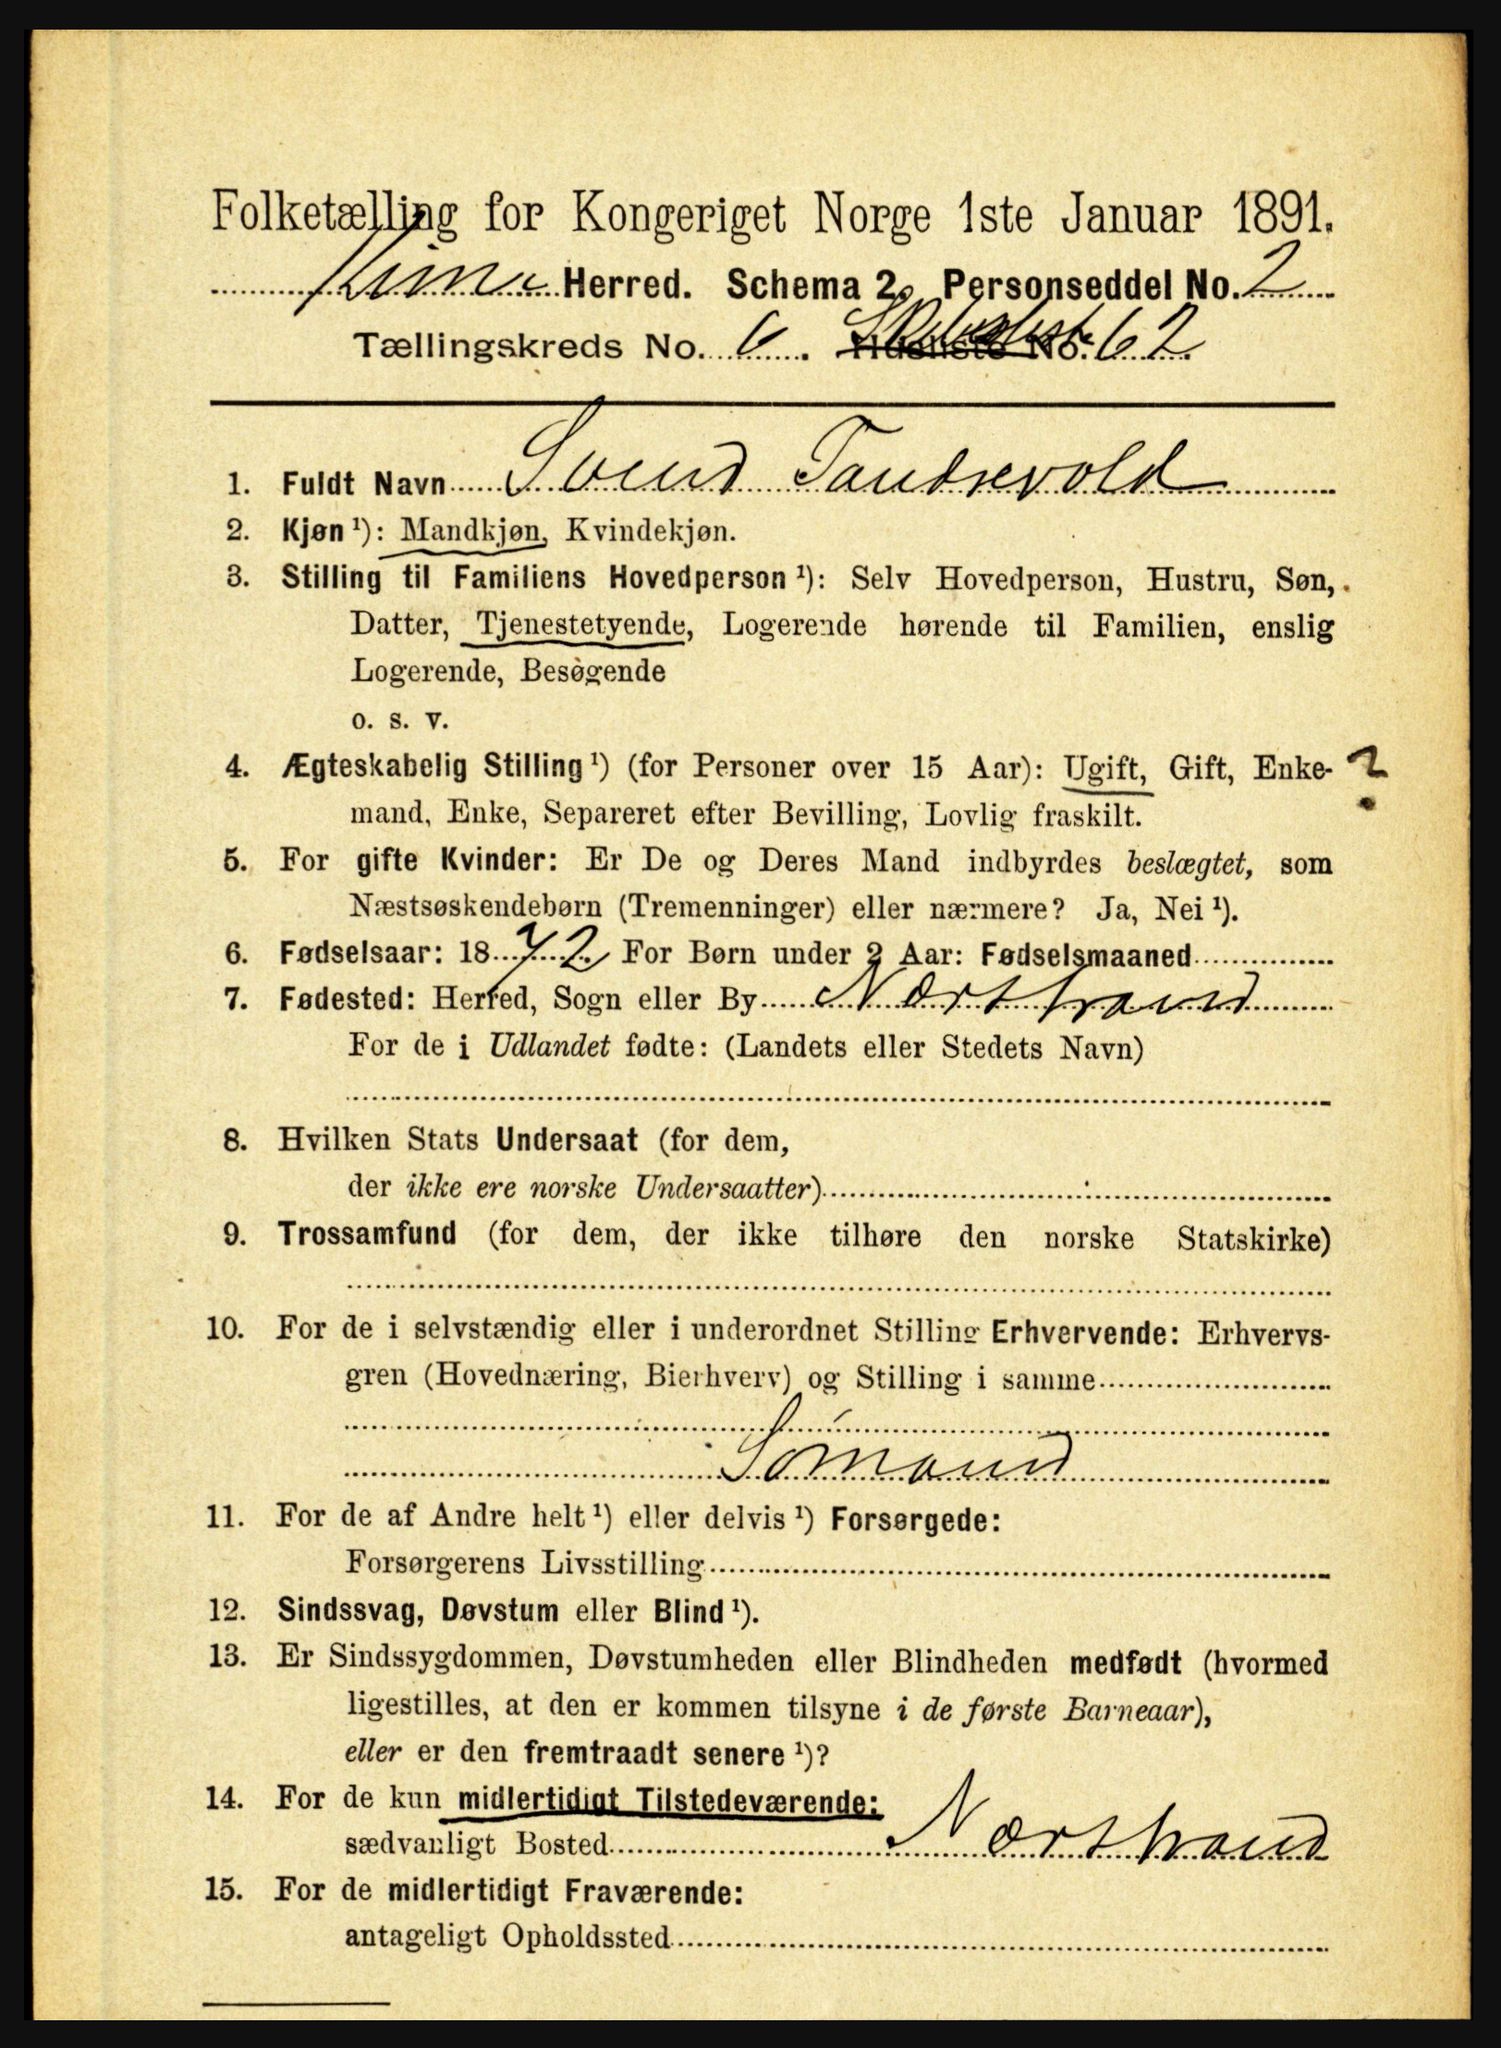 Folketælling for Kongeriget Norge 1ste Januar 1891.
Kinn Herred. Schema 2. Personseddel No. 2
Tællingskreds No. 6. Skibslist 62.
1. Fuldt Navn Svend Tandrevold
2. Kjøn ¹): Mandkjøn, Kvindekjøn.
3. Stilling til Familiens Hovedperson ¹): Selv Hovedperson, Hustru, Søn,
Datter, Tjenestetyende, Logerende hørende til Familien, enslig
Logerende, Besøgende
o. s. v.
4. Ægteskabelig Stilling ¹) (for Personer over 15 Aar): Ugift, Gift, Enke- ?
mand, Enke, Separeret efter Bevilling, Lovlig fraskilt.
5. For gifte Kvinder: Er De og Deres Mand indbyrdes beslægtet, som
Næstsøskendebørn (Tremenninger) eller nærmere? Ja, Nei ¹).
6. Fødselsaar: 1872. For Børn under 2 Aar: Fødselsmaaned
7. Fødested: Herred, Sogn eller By Nærstrand
For de i Udlandet fødte: (Landets eller Stedets Navn)
8. Hvilken Stats Undersaat (for dem,
der ikke ere norske Undersaatter)
9. Trossamfund (for dem, der ikke tilhøre den norske Statskirke)
10. For de i selvstændig eller i underordnet Stilling Erhvervende: Erhvervs-
gren (Hovednæring, Bierhverv) og Stilling i samme
Sømand
11. For de af Andre helt ¹) eller delvis ¹) Forsørgede:
Forsørgerens Livsstilling
12. Sindssvag, Døvstum eller Blind ¹).
13. Er Sindssygdommen, Døvstumheden eller Blindheden medfødt (hvormed
ligestilles, at den er kommen tilsyne i de første Barneaar),
eller er den fremtraadt senere ¹)?
14. For de kun midlertidigt Tilstedeværende:
sædvanligt Bosted Nærstrand
15. For de midlertidigt Fraværende:
antageligt Opholdssted